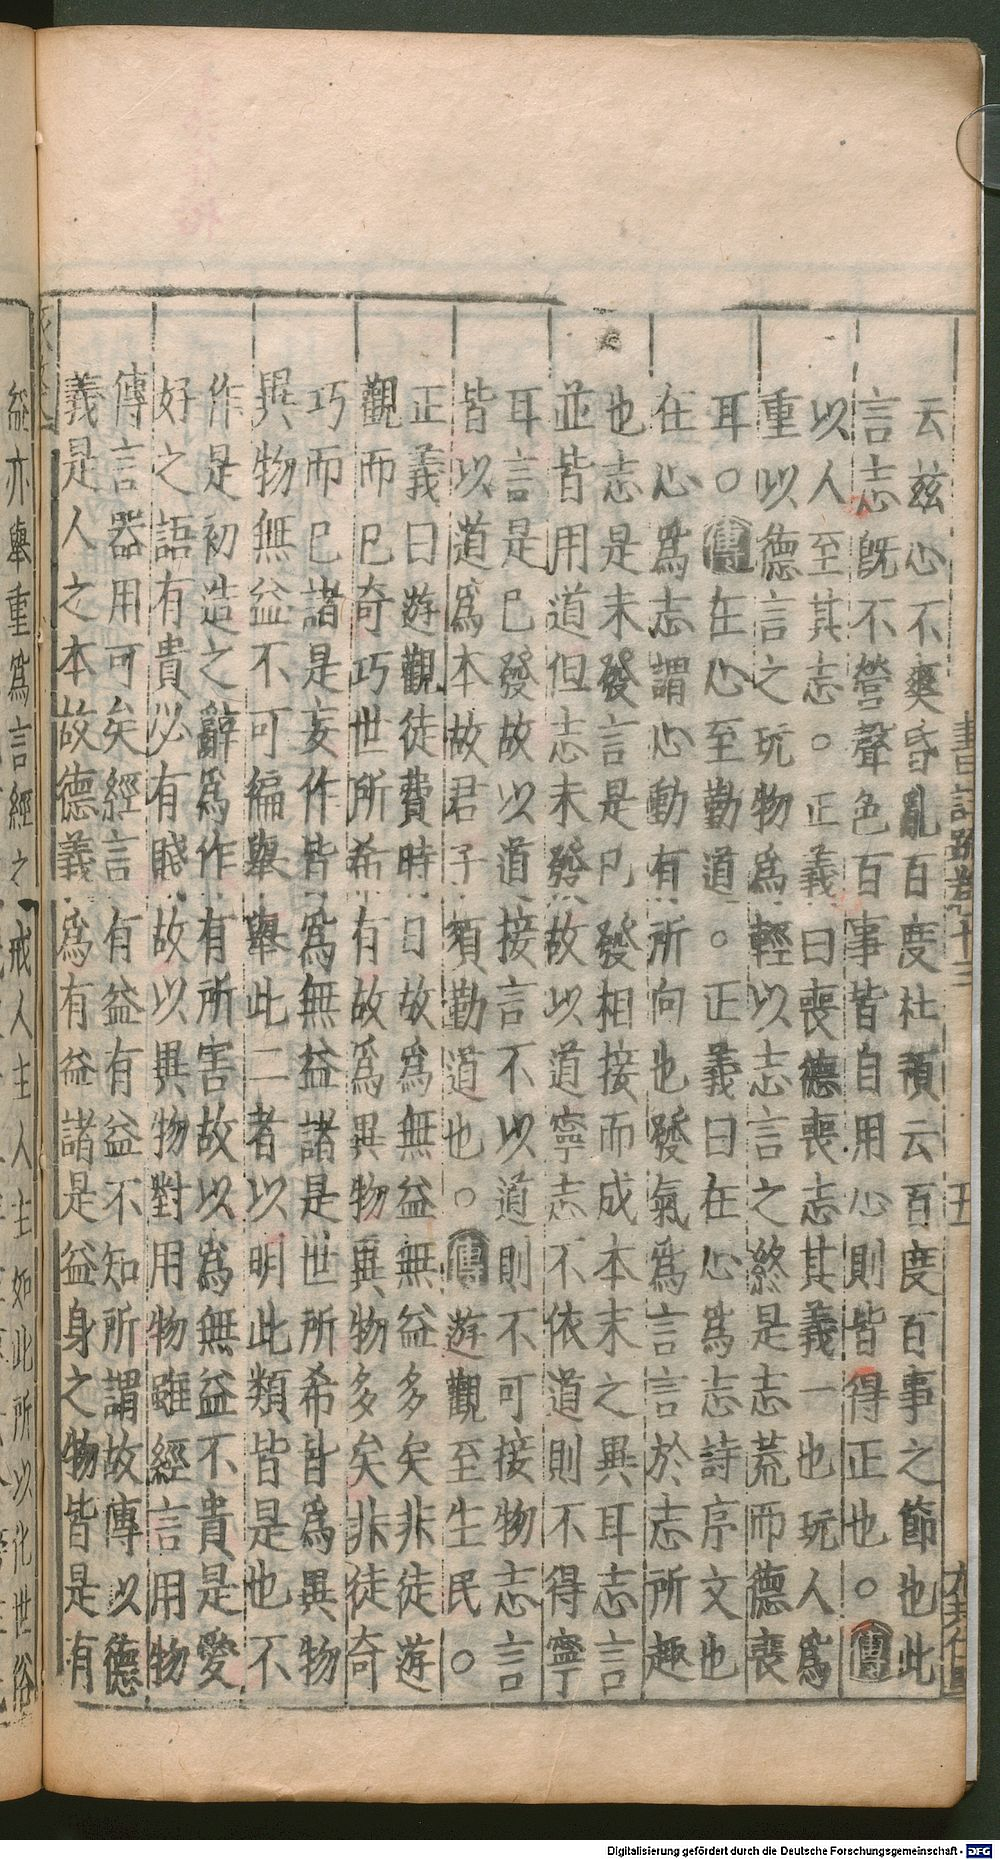 云玆心不爽昏亂百度杜預云百度百事之節也此
言志既不營聲色百事皆自用心則皆得正也○傳
以人至其志○正義曰喪德喪志其義一也玩人爲
重以德言之玩物爲輕以志言之終是志荒而德喪
耳○傳在心至勤道○正義曰在心爲志詩序文也
在心爲志謂心動有所向也發氣爲言言於志所趣
也志是未發言是已發相接而成本末之異耳志言
並皆用道但志未發故以道寧志不依道則不得寧
耳言是已發故以道接言不以道則不可接物志言
皆以道爲本故君子須勤道也○傳遊觀至生民○
正義曰遊觀徒費時日故爲無益無益多矣非徒遊
觀而已奇巧世所希有故爲異物異物多矣非徒奇
巧而已諸是妄作皆爲無益諸是世所希皆爲異物
異物無益不可徧舉舉此二者以明此類皆是也不
作是初造之辭爲作有所害故以爲無益不貴是愛
好之語有貴必有賤故以異物對用物雖經言用物
傳言器用可矣經言有益有益不知所謂故傳以德
義是人之本故德義爲有益諸是益身之物皆是有
書註疏卷十三
五
益亦舉重爲言經之戒人主人主如此所以化世俗
Digitalisierung gefördert durch die Deutsche Forschungsgemeinschaft - DFG